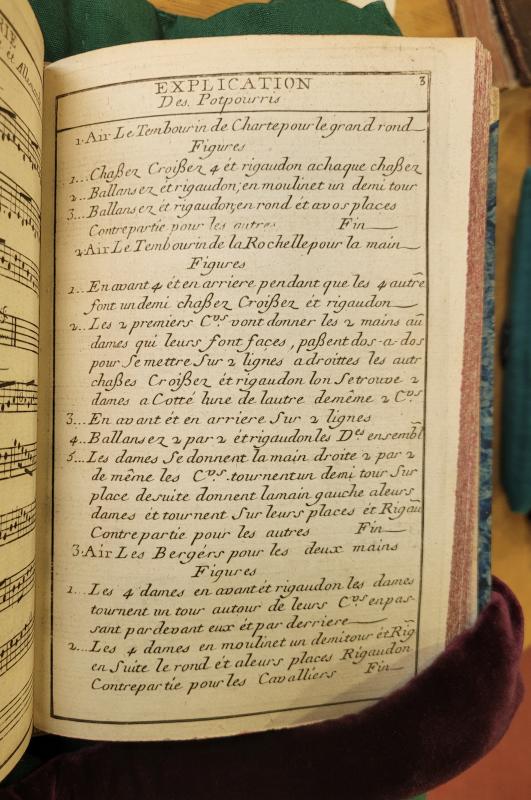 RIE
et Allemande
EXPLICATION
3
Des Potpourris
1. Air Le Tembourin de Charte pour le grand rond
Figures
1... Chaßez Croißez 4 ét rigaudon a chaque chaßez
2.. Ballansez ét rigaudon; en moulinet un demi tour
3.. Ballansez ét rigaudon; en rond ét a vos places
Contrepartie pour les autres Fin
2. Air Le Tembourin de la Rochelle pour la main
Figures
1.. En avant 4 ét en arriere pendant que les 4 autre
font un demi chaßez Croißez ét rigaudon
2.. Les 2 premiers Cvs vont donner les 2 mains au
dames qui leurs font faces, paßent dos-a-dos
pour Se mettre Sur 2 lignes a droittes les autr
chaßes Croißez ét rigaudon lon Se trouve 2
dames a Cotté lune de lautre de même 2 Cvs
3... En avant ét en arriere Sur 2 lignes
4.. Ballansez 2 par 2 ét rigaudon les Des ensembl
5... Les dames Se donnent la main droite 2 par 2
de même les Cvs. tournent un demi tour Sur
place de suite donnent la main gauche a leurs
dames ét tournent Sur leurs places ét Rigau
Contre partie pour les autres Fin
3. Air Les Bergers pour les deux mains
Figures
1... Les 4 dames en avant ét rigaudon les dames
tournent un tour autour de leurs Cvs en pas-
sant par devant eux ét par derriere
2... Les 4 dames en moulinet un demi tour ét Rig
en Suite le rond ét a leurs places Rigaudon
Contrepartie pour les Cavalliers Fin